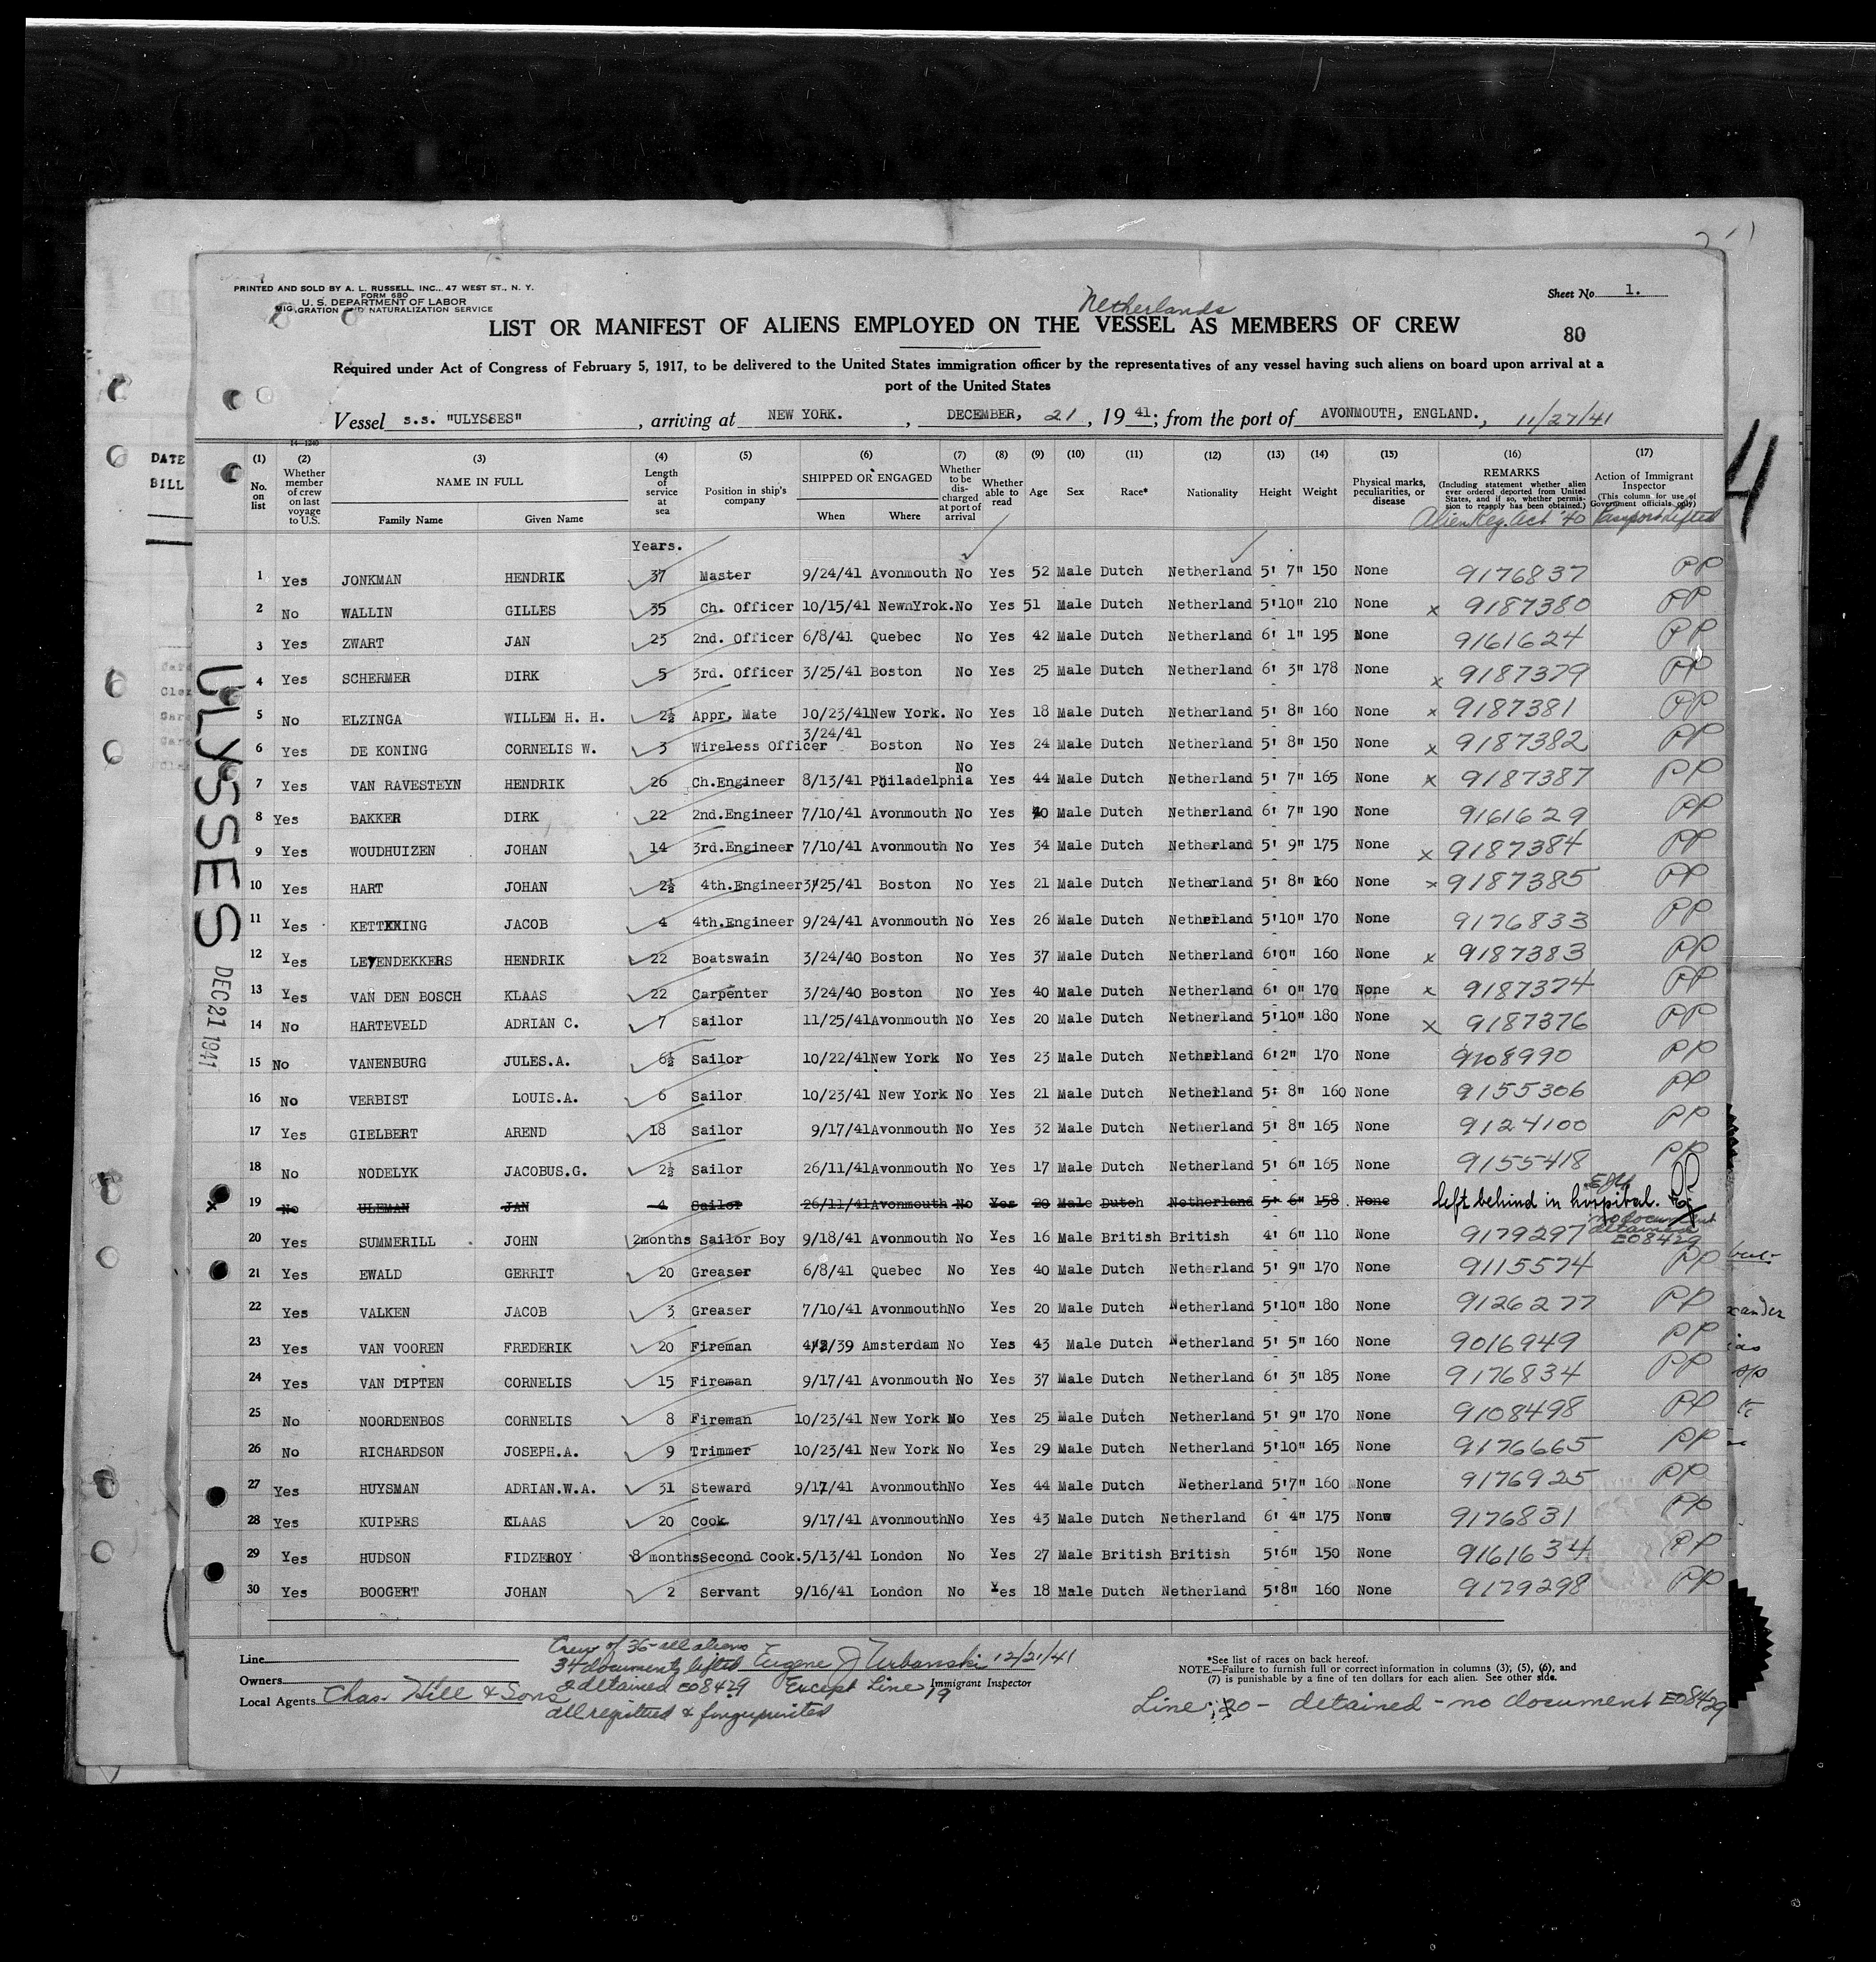 PRINTED AND SOLD BY A. L. RUSSELL, INC., 47 WEST ST., N. Y.
FORM 680
U. S. DEPARTMENT OF LABOR
MIGRATION AND NATURALIZATION SERVICE
Sheet No. 1.
Netherlands
LIST OR MANIFEST OF ALIENS EMPLOYED ON THE VESSEL AS MEMBERS OF CREW
80
Required under Act of Congress of February 5, 1917, to be delivered to the United States immigration officer by the representatives of any vessel having such aliens on board upon arrival at a
port of the United States
Vessel s.s. "ULYSSES", arriving at NEW YORK., DECEMBER, 21, 19 41; from the port of AVONMOUTH, ENGLAND., 11/27/41
14-1240
DATE
BILL
4
(1) No. on list
(2) Whether member of crew on last voyage to U.S.
(3) NAME IN FULL Family Name Given Name
(4) Length of service at sea
(5) Position in ship's company
(6) SHIPPED OR ENGAGED When Where
(7) Whether to be discharged at port of arrival
(8) Whether able to read
(9) Age
(10) Sex
(11) Race*
(12) Nationality
(13) Height
(14) Weight
(15) Physical marks, peculiarities, or disease
(16) REMARKS (Including statement whether alien ever ordered deported from United States, and if so, whether permission to reapply has been obtained.)
(17) Action of Immigrant Inspector (This column for use of Government officials only)
Alien Reg. Act '40 Passport lifted
Years.
1 Yes JONKMAN HENDRIK 37 Master 9/24/41 Avonmouth No Yes 52 Male Dutch Netherland 5' 7" 150 None 9176837 PP
2 No WALLIN GILLES 35 Ch. Officer 10/15/41 NewnYrok. No Yes 51 Male Dutch Netherland 5'10" 210 None x 9187380 PP
3 Yes ZWART JAN 23 2nd. Officer 6/8/41 Quebec No Yes 42 Male Dutch Netherland 6' 1" 195 None 9161624 PP
4 Yes SCHERMER DIRK 5 3rd. Officer 3/25/41 Boston No Yes 25 Male Dutch Netherland 6' 3" 178 None x 9187379 PP
5 No ELZINGA WILLEM H. H. 2½ Appr. Mate 10/23/41 New York. No Yes 18 Male Dutch Netherland 5' 8" 160 None x 9187381 PP
6 Yes DE KONING CORNELIS W. 3 Wireless Officer 3/24/41 Boston No Yes 24 Male Dutch Netherland 5' 8" 150 None x 9187382 PP
7 Yes VAN RAVESTEYN HENDRIK 26 Ch.Engineer 8/13/41 Philadelphia No Yes 44 Male Dutch Netherland 5' 7" 165 None x 9187387 PP
8 Yes BAKKER DIRK 22 2nd.Engineer 7/10/41 Avonmouth No Yes 40 Male Dutch Netherland 6' 7" 190 None 9161629 PP
9 Yes WOUDHUIZEN JOHAN 14 3rd.Engineer 7/10/41 Avonmouth No Yes 34 Male Dutch Netherland 5' 9" 175 None x 9187384 PP
10 Yes HART JOHAN 2½ 4th.Engineer 3/25/41 Boston No Yes 21 Male Dutch Netherland 5' 8" 160 None x 9187385 PP
11 Yes KETTEKING JACOB 4 4th.Engineer 9/24/41 Avonmouth No Yes 26 Male Dutch Netherland 5'10" 170 None 9176833 PP
12 Yes LEYENDEKKERS HENDRIK 22 Boatswain 3/24/40 Boston No Yes 37 Male Dutch Netherland 6'0" 160 None x 9187383 PP
13 Yes VAN DEN BOSCH KLAAS 22 Carpenter 3/24/40 Boston No Yes 40 Male Dutch Netherland 6' 0" 170 None x 9187374 PP
14 No HARTEVELD ADRIAN C. 7 Sailor 11/25/41 Avonmouth No Yes 20 Male Dutch Netherland 5'10" 180 None x 9187376 PP
15 No VANENBURG JULES.A. 6½ Sailor 10/22/41 New York No Yes 23 Male Dutch Netherland 6'2" 170 None 9108990 PP
16 No VERBIST LOUIS.A. 6 Sailor 10/23/41 New York No Yes 21 Male Dutch Netherland 5' 8" 160 None 9155306 PP
17 Yes GIELBERT AREND 18 Sailor 9/17/41 Avonmouth No Yes 32 Male Dutch Netherland 5' 8" 165 None 9124100 PP
18 No NODELYK JACOBUS.G. 2½ Sailor 26/11/41 Avonmouth No Yes 17 Male Dutch Netherland 5' 6" 165 None 9155418 PP
x 19 No ULEMAN JAN 4 Sailor 26/11/41 Avonmouth No Yes 20 Male Dutch Netherland 5' 6" 158 None left behind in hospital.
20 Yes SUMMERILL JOHN 2months Sailor Boy 9/18/41 Avonmouth No Yes 16 Male British British 4' 6" 110 None 9179297 no document detained E08429
21 Yes EWALD GERRIT 20 Greaser 6/8/41 Quebec No Yes 40 Male Dutch Netherland 5' 9" 170 None 9115574 PP
22 Yes VALKEN JACOB 3 Greaser 7/10/41 Avonmouth No Yes 20 Male Dutch Netherland 5'10" 180 None 9126277 PP
23 Yes VAN VOOREN FREDERIK 20 Fireman 4/2/39 Amsterdam No Yes 43 Male Dutch Netherland 5' 5" 160 None 9016949 PP
24 Yes VAN DIPTEN CORNELIS 15 Fireman 9/17/41 Avonmouth No Yes 37 Male Dutch Netherland 6' 3" 185 None 9176834 PP
25 No NOORDENBOS CORNELIS 8 Fireman 10/23/41 New York No Yes 25 Male Dutch Netherland 5' 9" 170 None 9108498 PP
26 No RICHARDSON JOSEPH.A. 9 Trimmer 10/23/41 New York No Yes 29 Male Dutch Netherland 5'10" 165 None 9176665 PP
27 Yes HUYSMAN ADRIAN.W.A. 31 Steward 9/17/41 Avonmouth No Yes 44 Male Dutch Netherland 5'7" 160 None 9176925 PP
28 Yes KUIPERS KLAAS 20 Cook 9/17/41 Avonmouth No Yes 43 Male Dutch Netherland 6' 4" 175 None 9176831 PP
29 Yes HUDSON FIDZEROY 8 months Second Cook. 5/13/41 London No Yes 27 Male British British 5'6" 150 None 9161634 PP
30 Yes BOOGERT JOHAN 2 Servant 9/16/41 London No Yes 18 Male Dutch Netherland 5'8" 160 None 9179298 PP
ULYSSES DEC 21 1941
Crew of 36-all aliens
34 documents lifted Eugene J Urbanski 12/21/41
2 detained E08429 Except Line 19 Immigrant Inspector
all registered & fingerprinted
Line
Owners
Local Agents Chas. Hill & Sons
*See list of races on back hereof.
NOTE.—Failure to furnish full or correct information in columns (3), (5), (6), and
(7) is punishable by a fine of ten dollars for each alien. See other side.
Line 20 - detained - no document E08429